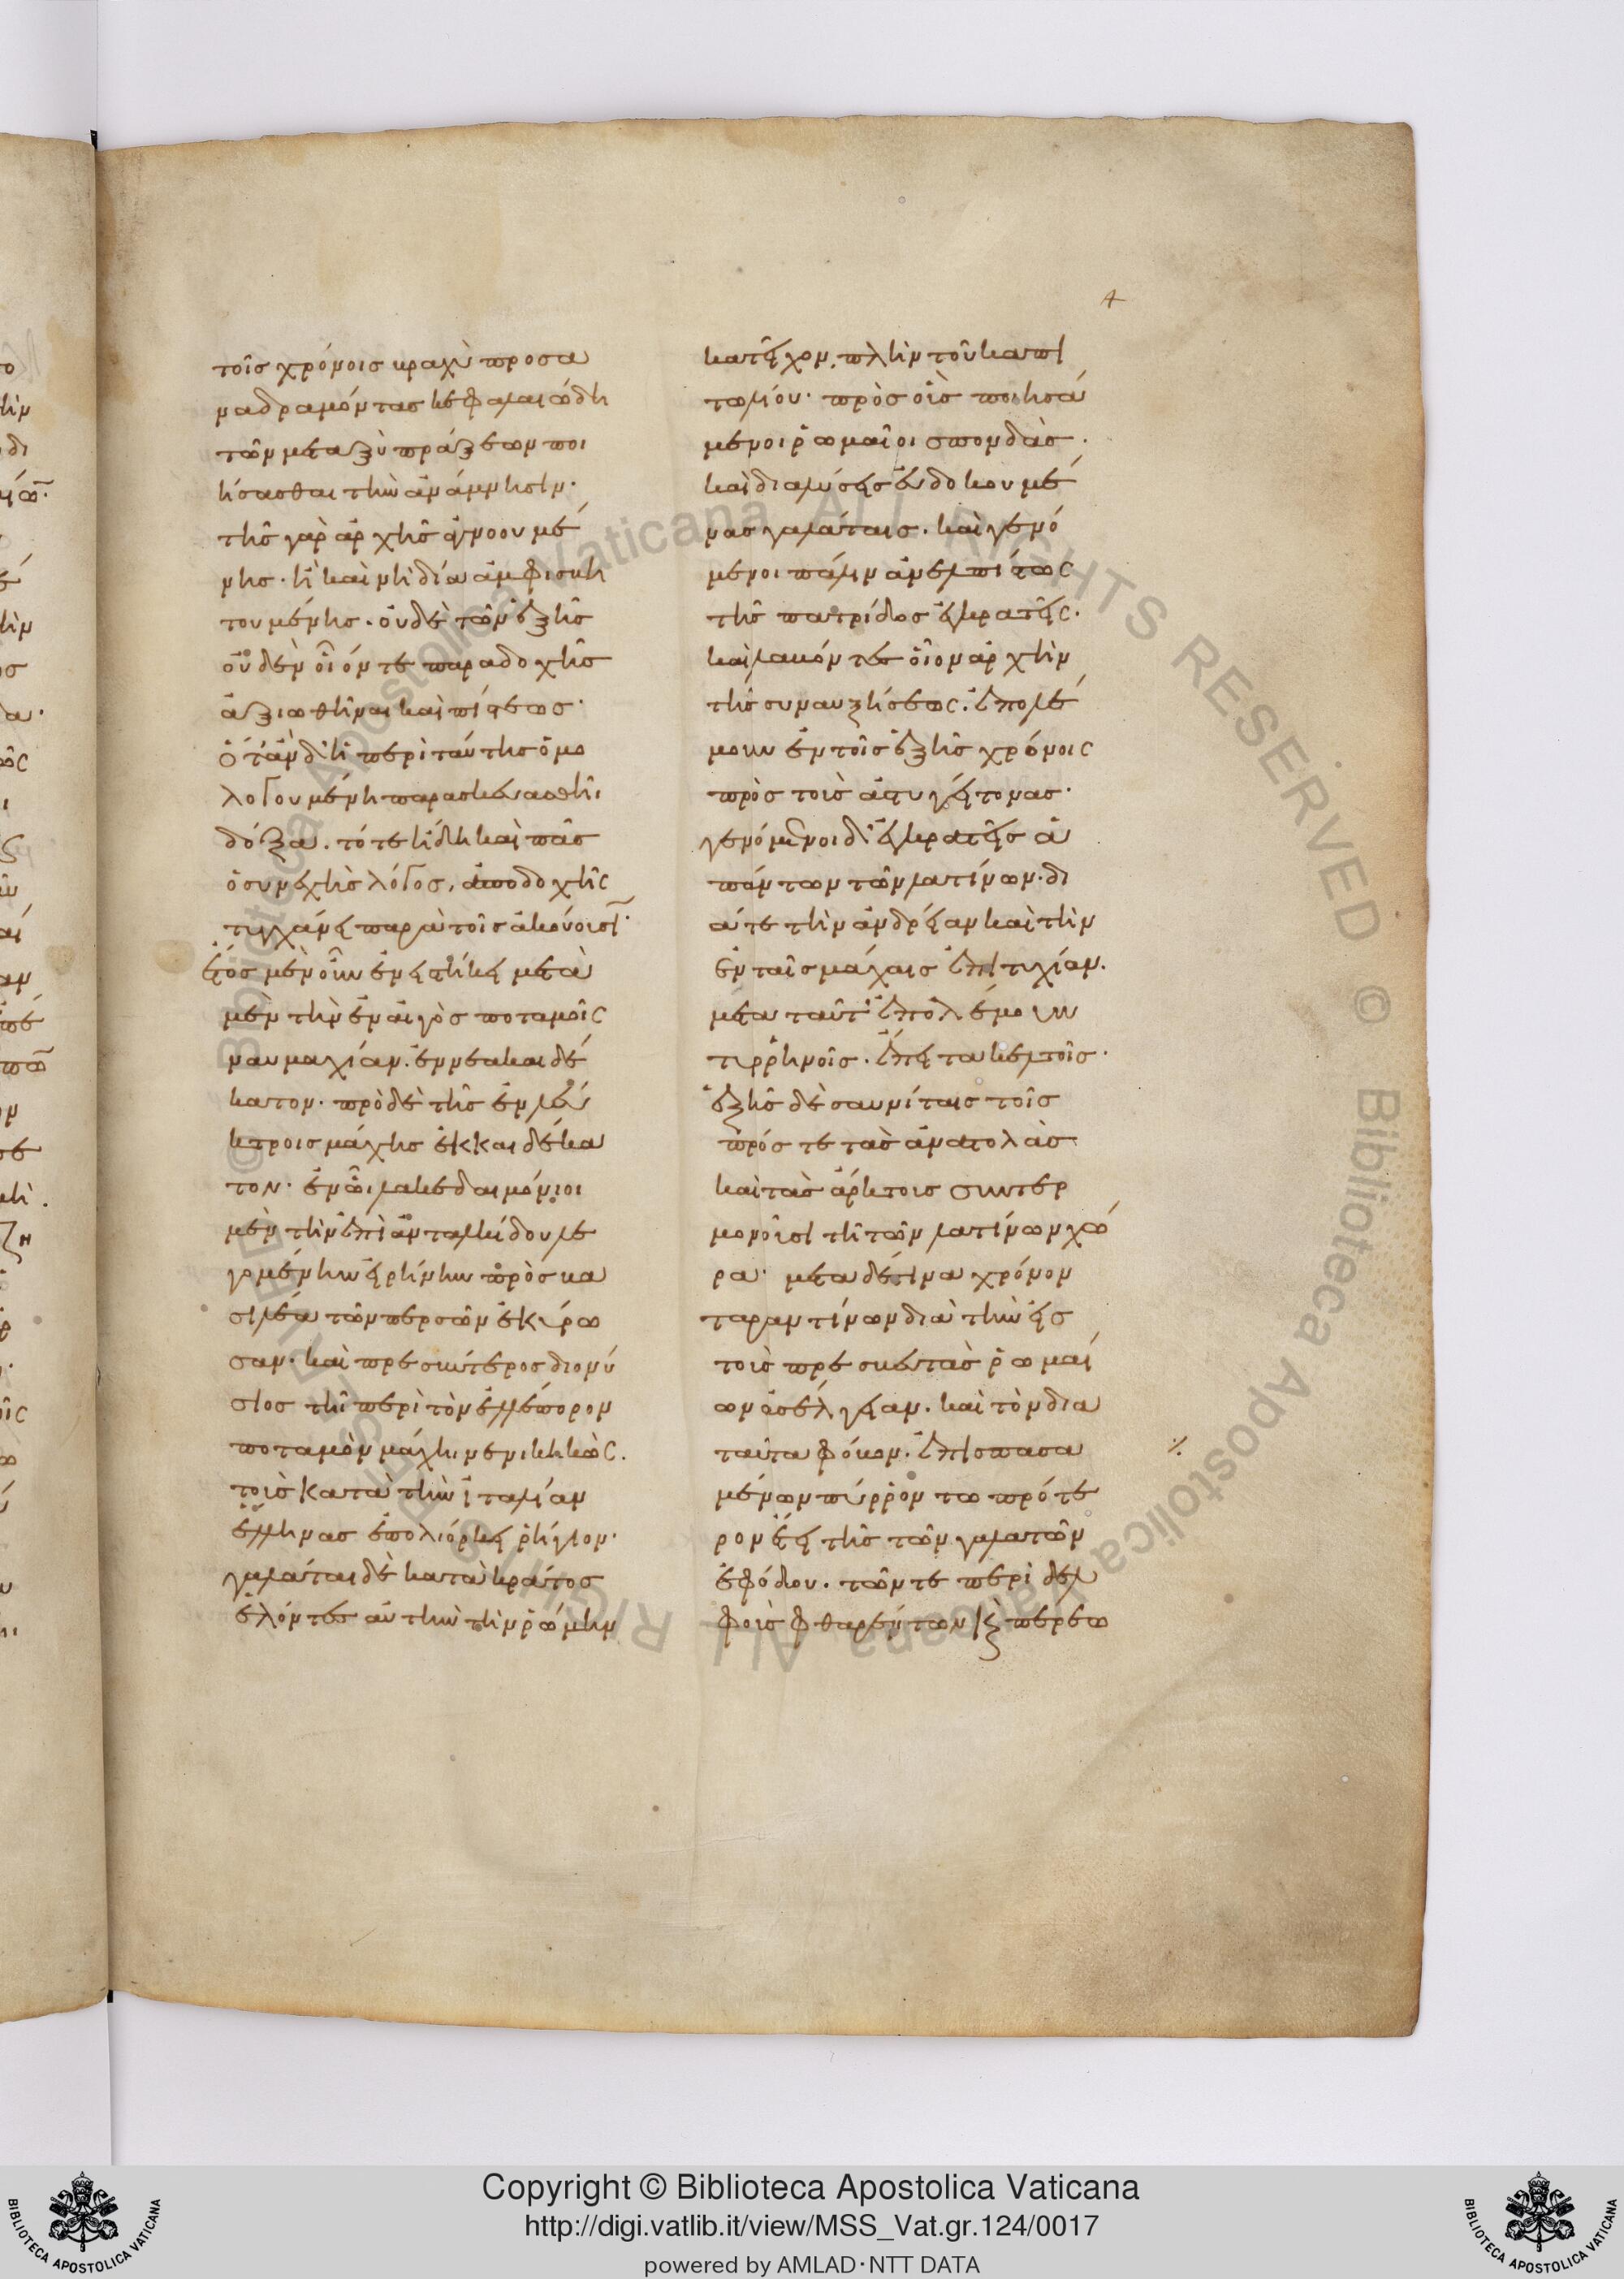 4
τοῖς χρόνοις βραχὺ προσα
ναδραμόντας κεφαλαιώδη
τῶν μεταξὺ πράξεων ποι
ήσασθαι τὴν ἀνάμνησιν·
τῆς γὰρ ἀρχῆς ἀγνοουμέ
νης· ἢ καὶ νὴ δία ἀμφισβη
τουμένης· οὐδὲ τῶν ἑξῆς
οὐδὲν οἷόν τε παραδοχῆς
ἀξιωθῆναι καὶ πίστεως·
ὅταν δ' ἡ περὶ ταύτης ὁμο
λογουμένη παρασκευασθῆι
δόξα. τότ' ἤδη καὶ πᾶς
ὁ συνεχὴς λόγος, ἀποδοχῆς
τυγχάνει παρὰ τοῖς ἀκούουσι·
ἔτος μὲν οὖν ἐνειστήκει μετὰ
μὲν τὴν ἐν αἰγὸς ποταμοῖς
ναυμαχίαν. ἐννεακαιδέ
κατον· πρὸ δὲ τῆς ἐν λεύ
κτροις μάχης ἐκκαιδέκα
τον· ἐν ὧι λακεδαιμόνιοι
μὲν τὴν ἐπὶ ἀνταλκίδου λε
γομένην εἰρήνην πρὸς βα
σιλέα τῶν περσῶν ἐκύρω
σαν· καὶ πρεσβύτερος διονύ
σιος τῆι περὶ τὸν ἐλλέπορον
ποταμὸν μάχηι νενικηκὼς.
τοὺς κατὰ τὴν ἰταλίαν
ἕλληνας ἐπολιόρκει ῥήγιον·
γαλάται δὲ κατὰ κράτος
ἑλόντες αὐτὴν τὴν ῥώμην
κατεῖχον. πλὴν τοῦ καπι
τωλίου· πρὸς οὓς ποιησά
μενοι ῥωμαῖοι σπονδὰς.
καὶ διαλύσεις εὐδοκουμέ
νας γαλάταις. καὶ γενό
μενοι πάλιν ἀνελπίστως
τῆς πατρίδος ἐγκρατεῖς.
καὶ λαβόντες οἷον ἀρχὴν
τῆς συναυξήσεως. ἐπολέ
μουν ἐν τοῖς ἑξῆς χρόνοις
πρὸς τοὺς ἀστυγείτονας·
γενόμενοι δ' ἐγκρατεῖς ἁ
πάντων τῶν λατίνων. δι
ά τε τὴν ἀνδρείαν καὶ τὴν
ἐν ταῖς μάχαις ἐπιτυχίαν.
μετὰ ταῦτ' ἐπολέμουν
τυρρηνοῖς. ἔπειτα κελτοῖς·
ἑξῆς δὲ σαυνίταις τοῖς
πρός τε τὰς ἀνατολὰς
καὶ τὰς ἄρκτους συντερ
μονοῦσι τῆι τῶν λατίνων χώ
ρα· μετὰ δέ τινα χρόνον
ταραντίνων διὰ τὴν εἰς
τοὺς πρεσβευτὰς ῥωμαί
ων ἀσέλγειαν. καὶ τὸν διὰ
ταῦτα φόβον. ἐπισπασα
μένων πύρρον τῶ πρότε
ρον ἔτει τῆς τῶν γαλατῶν
ἐφόδου. τῶν τε περὶ δελ
φοὺς φθαρέντων κ(αὶ) περεω